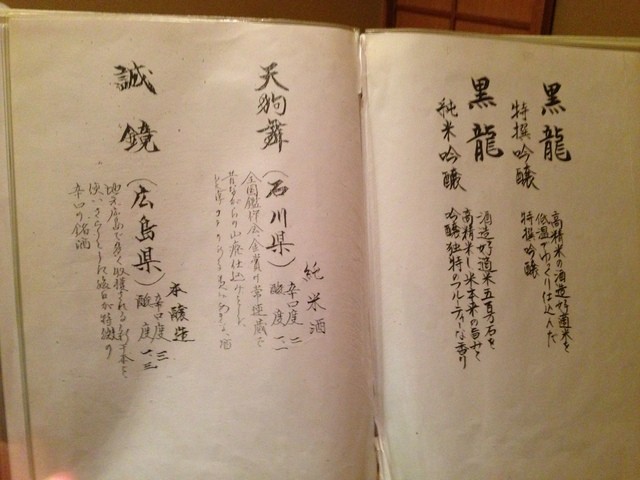 黒龍
特撰吟醸
高精米の酒造好適米を
低温でゆっくり仕込んだ
特撰吟醸
黒龍
純米吟醸
酒造好適米五百万石を
高精米し米本来の旨みと
吟醸独特のフルーティーな香り
天狗舞
(石川県)
純米酒
辛口度 二
酸度 一、二
全国鑑評会金賞の常連蔵で
昔ながらの山廃仕込みを
誠鏡
(広島県)
本醸造
辛口度 三
酸度 一、三
辛口の銘酒